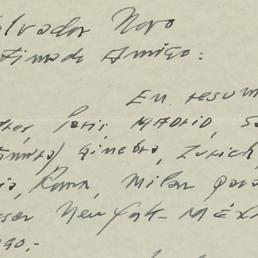 lvador Novo
timado Amigo:
En resum
Paris, MADRID, S
Ginebra, Zurich,
Roma, Milan para
New York - MÉX
go.-